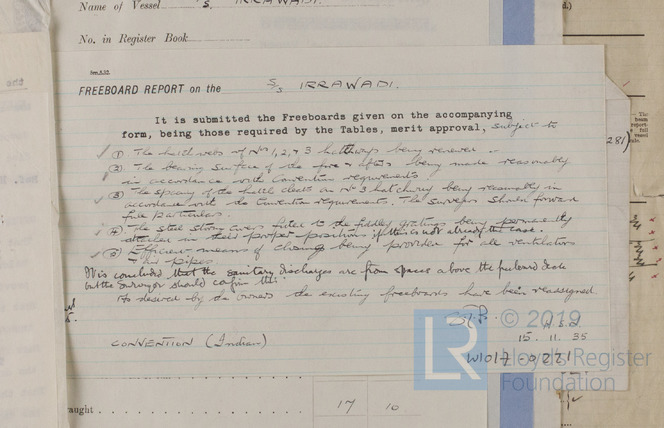 Name of Vessel S. IRRAWADI.
No. in Register Book
FREEBOARD REPORT on the S/S IRRAWADI.
It is submitted the Freeboards given on the accompanying
form, being those required by the Tables, merit approval, subject to
(1) The hatch webs of Nos 1, 2, & 3 hatchways being renewed.
(2) The bearing surface of the fore & afters being made reasonably
in accordance with Convention requirements
(3) The spacing of the hatch cleats on No 3 hatchway being reasonably in
accordance with the Convention requirements. The Surveyor should forward
full particulars.
(4) The steel strong covers fitted to the fiddley gratings being permanently
attached in their proper positions if this is not already the case.
(5) Efficient means of closing being provided for all ventilators
& air pipes
It is concluded that the sanitary discharges are from spaces above the freeboard deck
but the Surveyor should confirm this.
As desired by the owners the existing freeboards have been reassigned
CONVENTION (Indian)
15. 11. 35
W1017-0221
LR © 2019
Lloyd's Register
Foundation
raught
17 10
281)